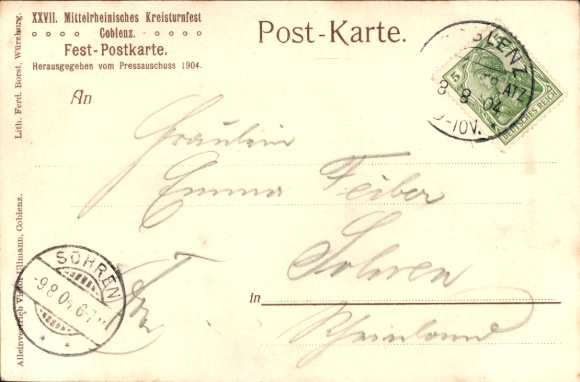 XXVII. Mittelrheinisches Kreisturnfest
Coblenz.
Fest-Postkarte.
Herausgegeben vom Pressauschuss 1904.
Post-Karte.
Lith. Ferd. Borst, Würzburg.
Alleinvertrieb Victor Illmann, Coblenz.
An
Fräulein
Emma Feiber
Sohren
in
Rheinland
BLENZ
PLATZ
8 8 04
-10V.
5
DEUTSCHES REICH
SOHREN
-9.8.04.6-7